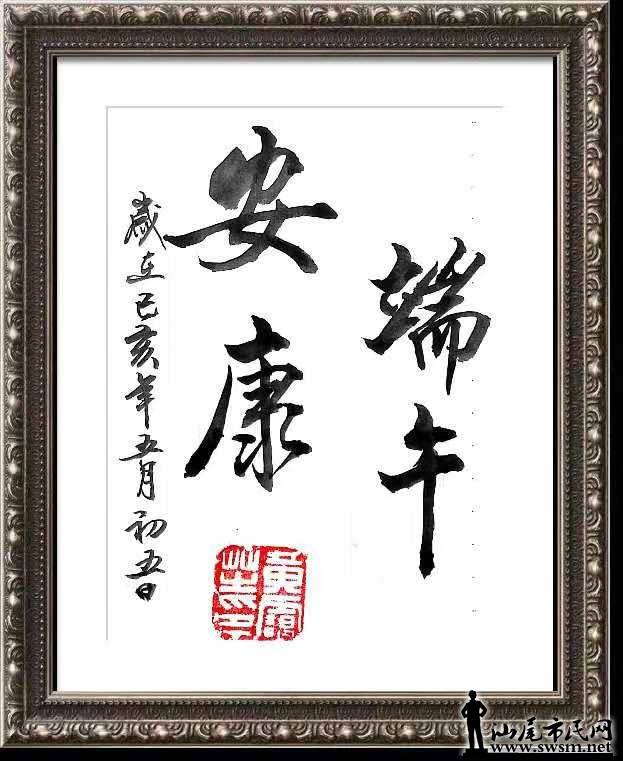 端午
安康
歲在己亥年五月初五日
汕尾市民网
www.swsm.net